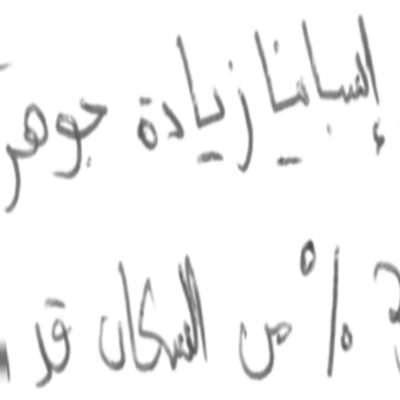 إسبانيا زيادة جوهر
% من السكان قد